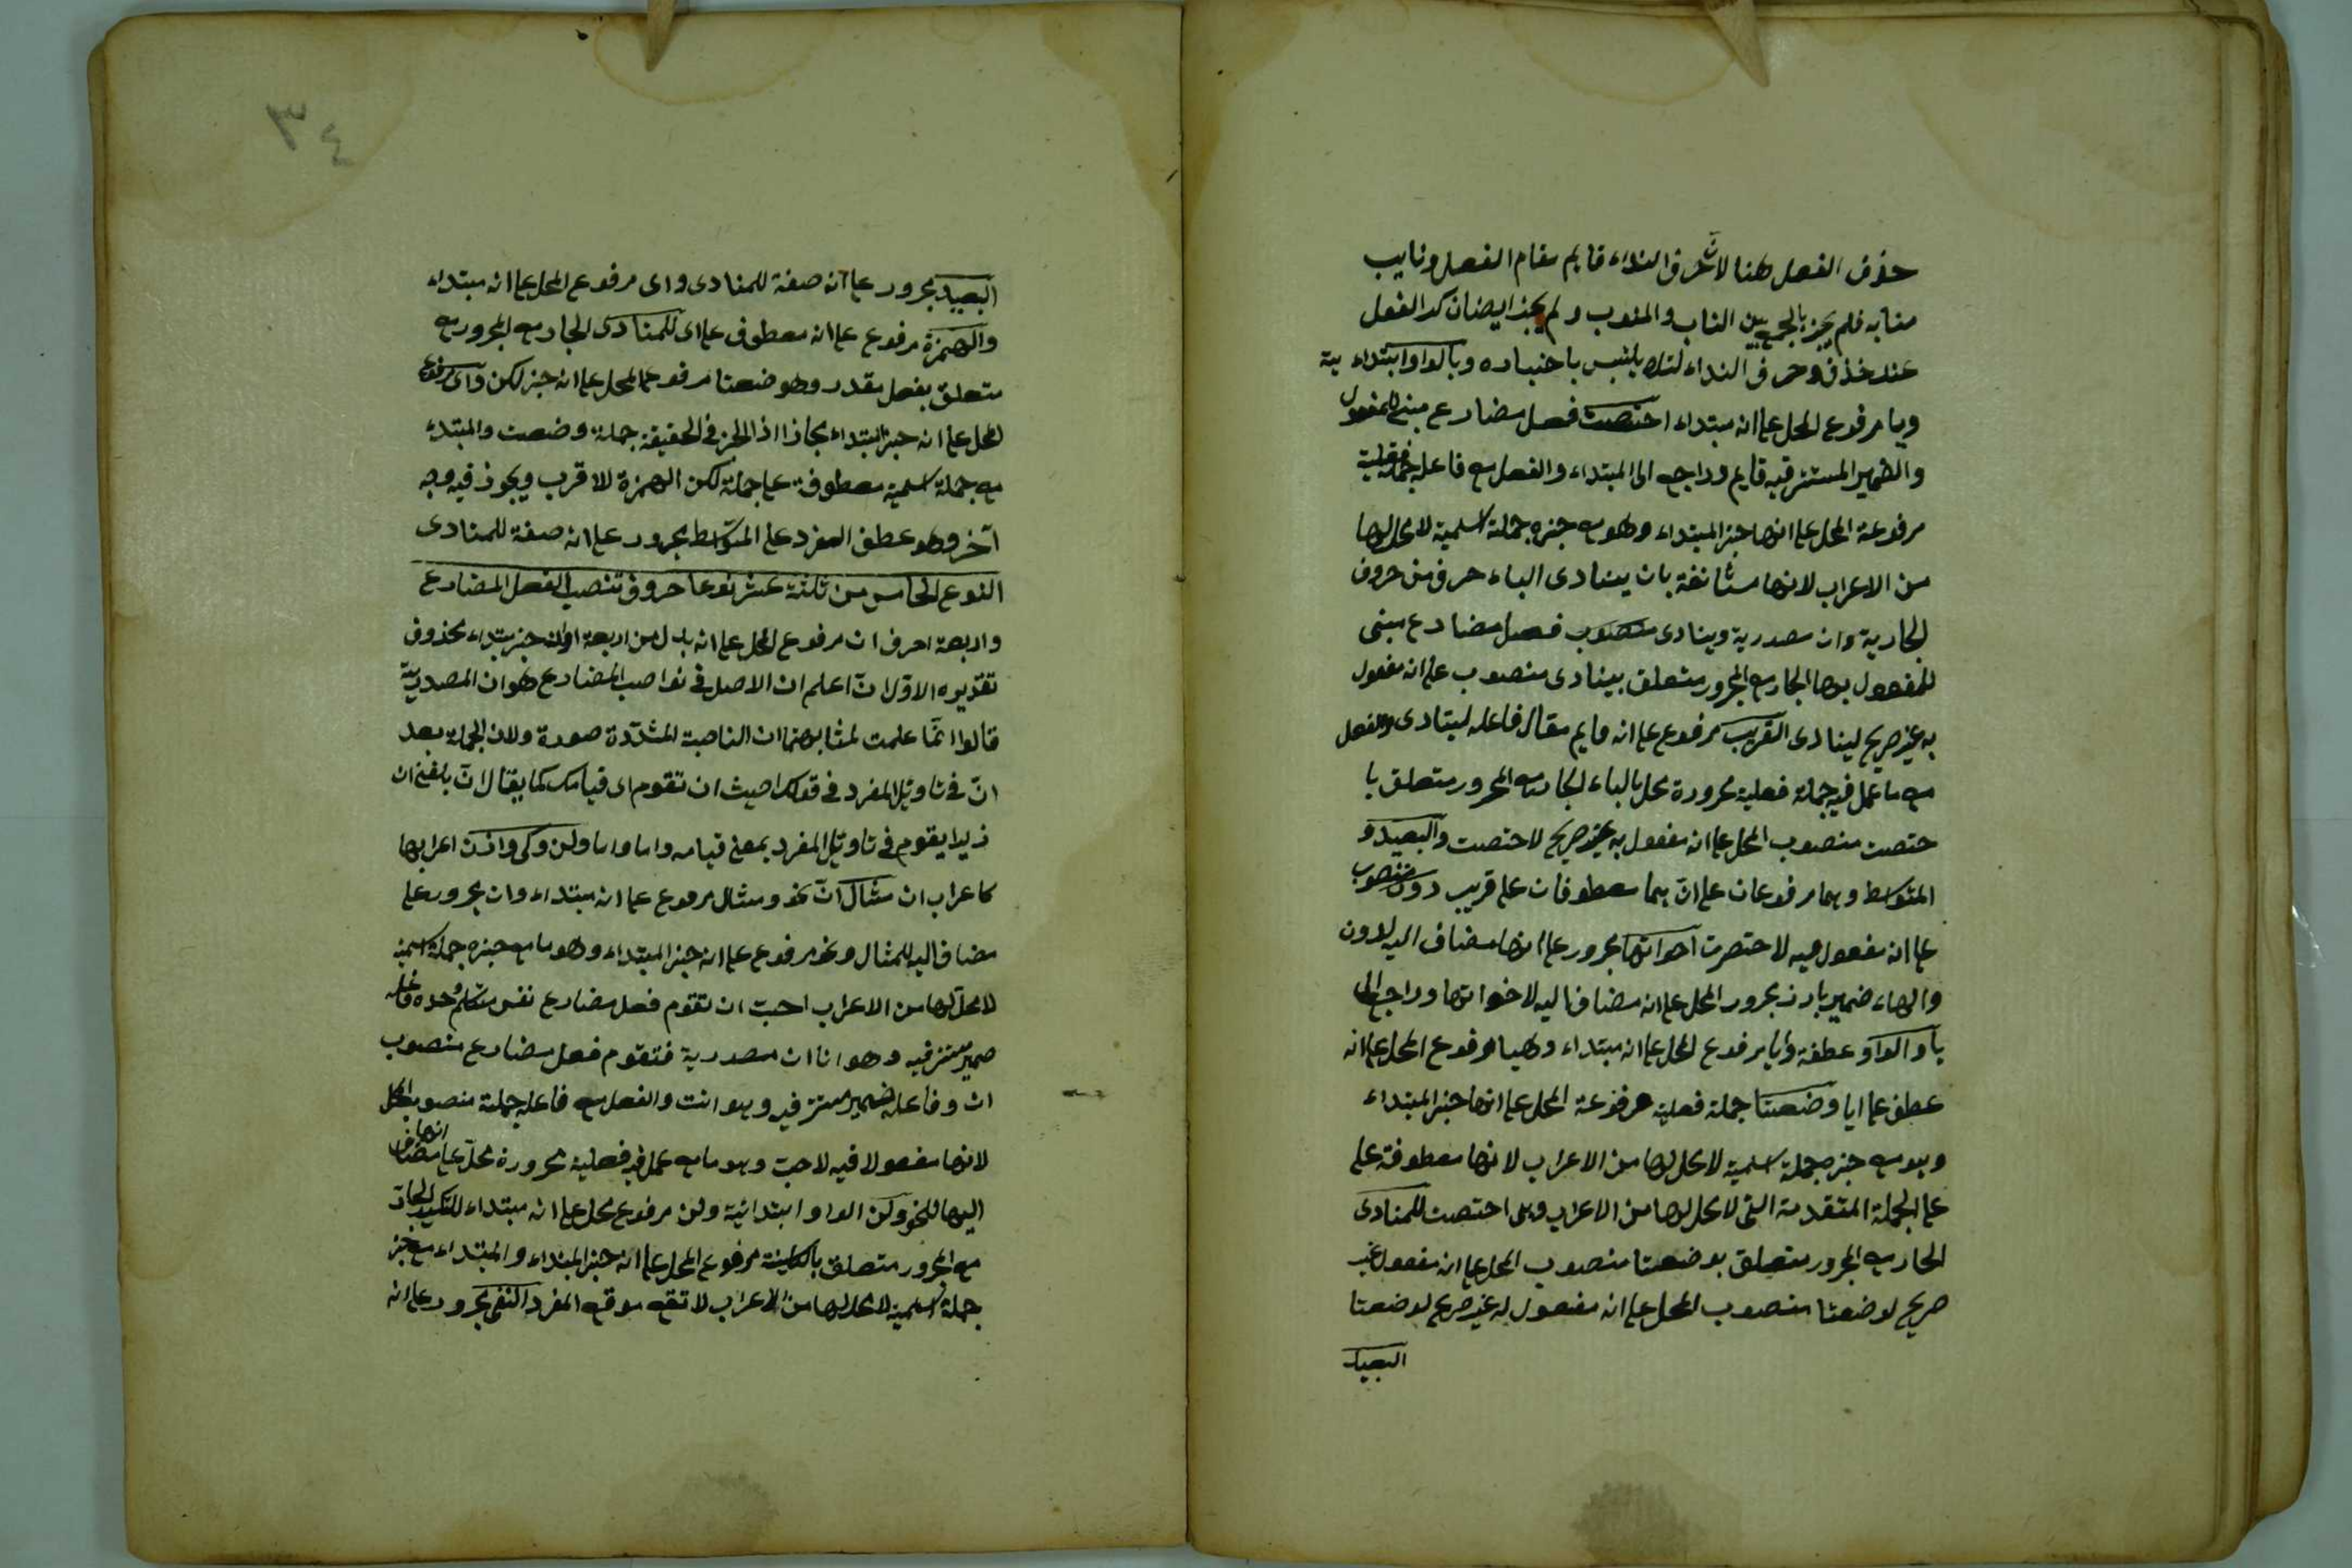 حذف الفعل هنا لان حرف النداء قايم مقام الفعل ونايب
منابه فلم يجز بالجمع بين الناب والمنوب ولم يجز ايضا ان كد الفعل
عند حذف حرف النداء لئلا يلتبس باخباره وبالواو ابتداء ية
ويا مرفوع المحل على انه مبتداء اختصت فعل مضارع مبنى للمفعول
والضمير المستتر فيه قايم وراجع الى المبتداء والفعل مع فاعله جملة فعلية
مرفوعة المحل على انها خبر المبتداء وهو مع خبره جملة اسمية لا محل لها
من الاعراب لانها مستأنفة بان ينادى الباء حرف من حروف
الجارية وان مصدرية وينادى منصوب فعل مضارع مبنى
للمفعول بها الجار مع المجرور متعلق بينادى منصوب على انه مفعول
به غير صريح لينادى القريب مرفوع على انه قايم مقال فاعله لينادى والفعل
مع ما عمل فيه جملة فعلية مجرورة محل بالباء الجار مع المجرور متعلق با
ختصت منصوب المحل على انه مفعول به غير صريح لاختصت والبعيد و
المتوسط وهما مرفوعان على ان هما معطوفان على قريب دون منصوب
على انه مفعول فيه لاختصرت اخواتها مجرور على انها مضاف اليه لدون
والهاء ضمير بارز مجرور المحل على انه مضاف اليه لاخواتها وراجع الى
يا والواو عطفة وايا مرفوع المحل على انه مبتداء وهيا مرفوع المحل على انه
عطف على ايا وضعتا جملة فعلية مرفوعة المحل على انها خبر المبتداء
وهو مع خبره جملة اسمية لا محل لها من الاعراب لانها معطوفة على
على الجملة المتقدمة التى لا محل لها من الاعراب وهى اختصت للمنادى
الجار مع المجرور متعلق بوضعتا منصوب المحل على انه مفعول غير
صريح لوضعتا منصوب المحل على انه مفعول له غير صريح لوضعتا
البعيد
٣٤
البعيد مجرور على انه صفة للمنادى واى مرفوع المحل على انه مبتداء
والهمزة مرفوع على انه معطوف على اى للمنادى الجار مع المجرور مع
متعلق بفعل مقدر وهو ضعتا مرفوع المحل على انه خبر لكن واى مرفوع
المحل على انه خبر ابتداء مجازا اذ الخبر فى الحقيقة جملة وضعت والمبتداء
مع جملة اسمية معطوفة على جملة لكن الهمزة للاقرب ويجوز فيه وجه
آخر وهو عطف المفرد على المتوسط مجرور على انه صفة للمنادى
النوع الخامس من ثلثة عشر نوعا حروف تنصب الفعل المضارع
واربعة احرف ان مرفوع المحل على انه بدل من اربعة او انه خبر مبتداء محذوف
تقديره الاول ان اعلم ان الاصل فى نواصب المضارع هو ان المصدرية
قالوا انما علمت لمشابهتها ان الناصبة المشددة صورة ولان الجملة بعد
ان فى تاويل المفرد فى قولك احيث ان تقوم اى قيامك كما يقال ان بلغنى ان
زيدا يقوم فى تاويل المفرد بمعنى قيامه واما واما ولن وكى واذن اعرابها
كاعراب ان مثال ان نحو ومثال مرفوع على انه مبتداء وان مجرور على
مضاف اليه للمثال ونحو مرفوع على انه خبر المبتداء وهو مع خبره جملة اسمية
لا محل لها من الاعراب احب ان تقوم فعل مضارع نفس متكلم وحده فاعله
ضمير مستتر فيه وهو انا ان مصدرية فتقوم فعل مضارع منصوب
ان وفاعله ضمير مستتر فيه وهو انت والفعل مع فاعله جملة منصوب المحل
لانها مفعولا فيه لاحب وهو مع عمل فيه فعلية مجرورة محل على انها مضاف
اليها للنحو ولن الواو ابتدائية ولن مرفوع محل على انه مبتداء للتأكيد الجار
مع المجرور متعلق بالكاينة مرفوع المحل على انه خبر المبتداء والمبتداء مع خبر
جملة اسمية لا محل لها من الاعراب لا تقع موقع المفرد النفى مجرور على انه